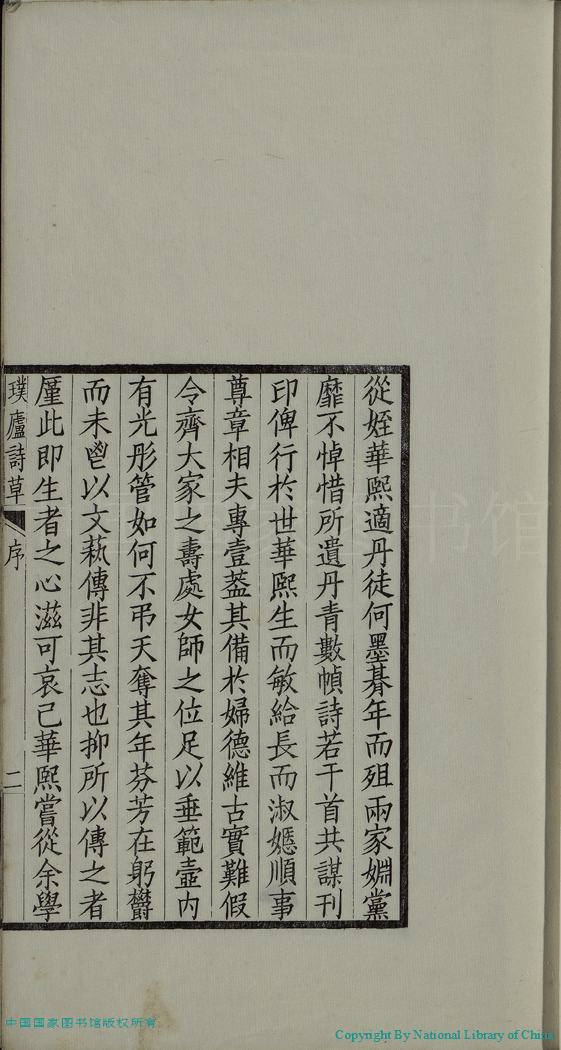 從姪華熙適丹徒何墨朞年而殂兩家婣黨
靡不悼惜所遺丹青數幀詩若干首共謀刊
印俾行於世華熙生而敏給長而淑嫕順事
尊章相夫專壹葢其備於婦德維古實難假
令齊大家之壽處女師之位足以垂範壼内
有光彤管如何不弔天奪其年芬芳在躬欝
而未鬯以文藝傳非其志也抑所以傳之者
厪此即生者之心滋可哀已華熙嘗從余學
璞廬詩草 序 二
中国国家图书馆版权所有
Copyright By National Library of China